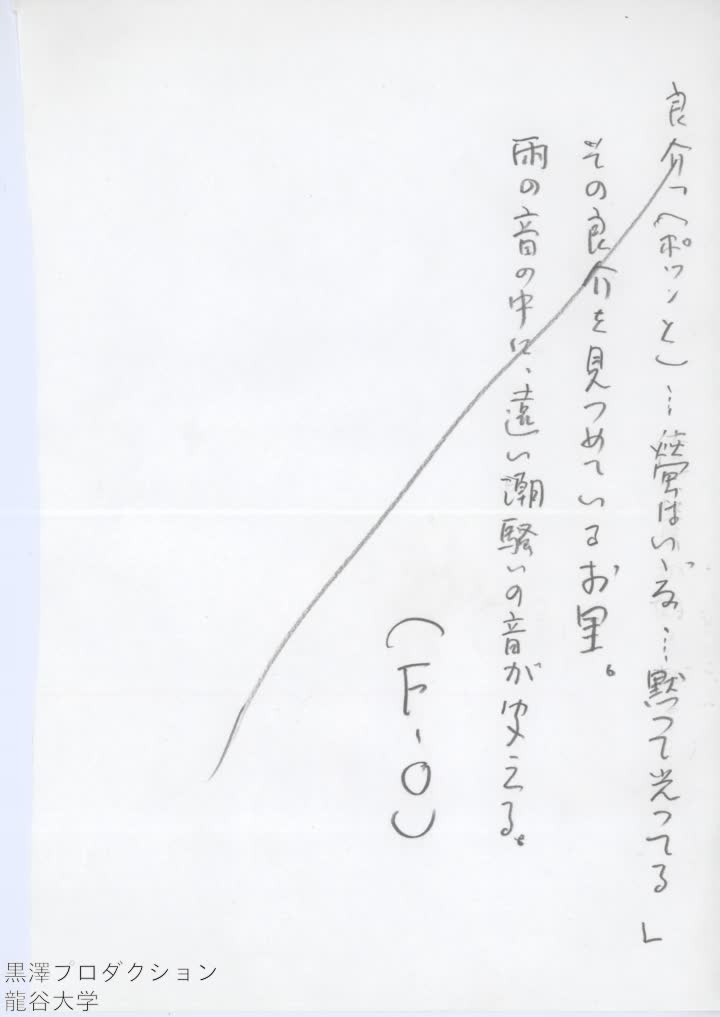 良介「(ポツンと)……螢はいゝな……黙つて光つてる」
その良介を見つめているお里。
雨の音の中に、遠い潮騒いの音が聞える。
(F・O)
黒澤プロダクション
龍谷大学